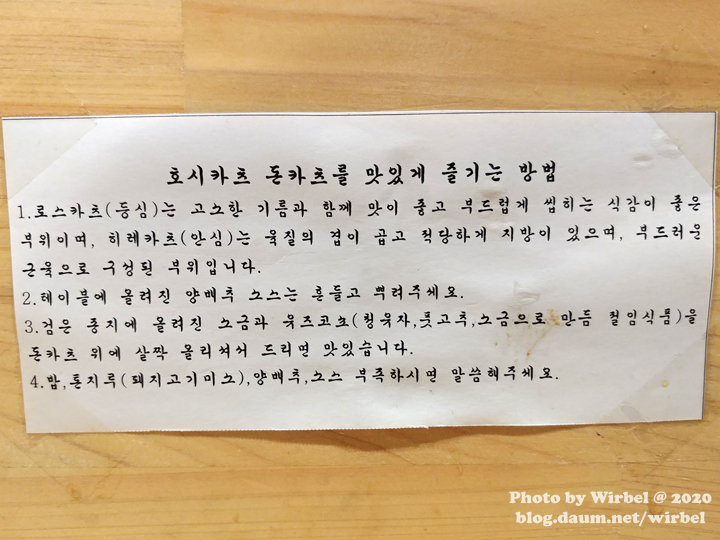 호시카츠 돈카츠를 맛있게 즐기는 방법
1.로스카츠(등심)는 고소한 기름과 함께 맛이 좋고 부드럽게 씹히는 식감이 좋은
부위이며, 히레카츠(안심)는 육질의 겹이 곱고 적당하게 지방이 있으며, 부드러운
근육으로 구성된 부위입니다.
2.테이블에 올려진 양배추 소스는 흔들고 뿌려주세요.
3.검은 종지에 올려진 소금과 유즈코쇼(청유자,풋고추,소금으로 만듬 절임식품)을
돈카츠 위에 살짝 올리셔서 드리면 맛있습니다.
4.밥,톤지루(돼지고기미소),양배추,소스 부족하시면 말씀해주세요.
Photo by Wirbel @ 2020
blog.daum.net/wirbel